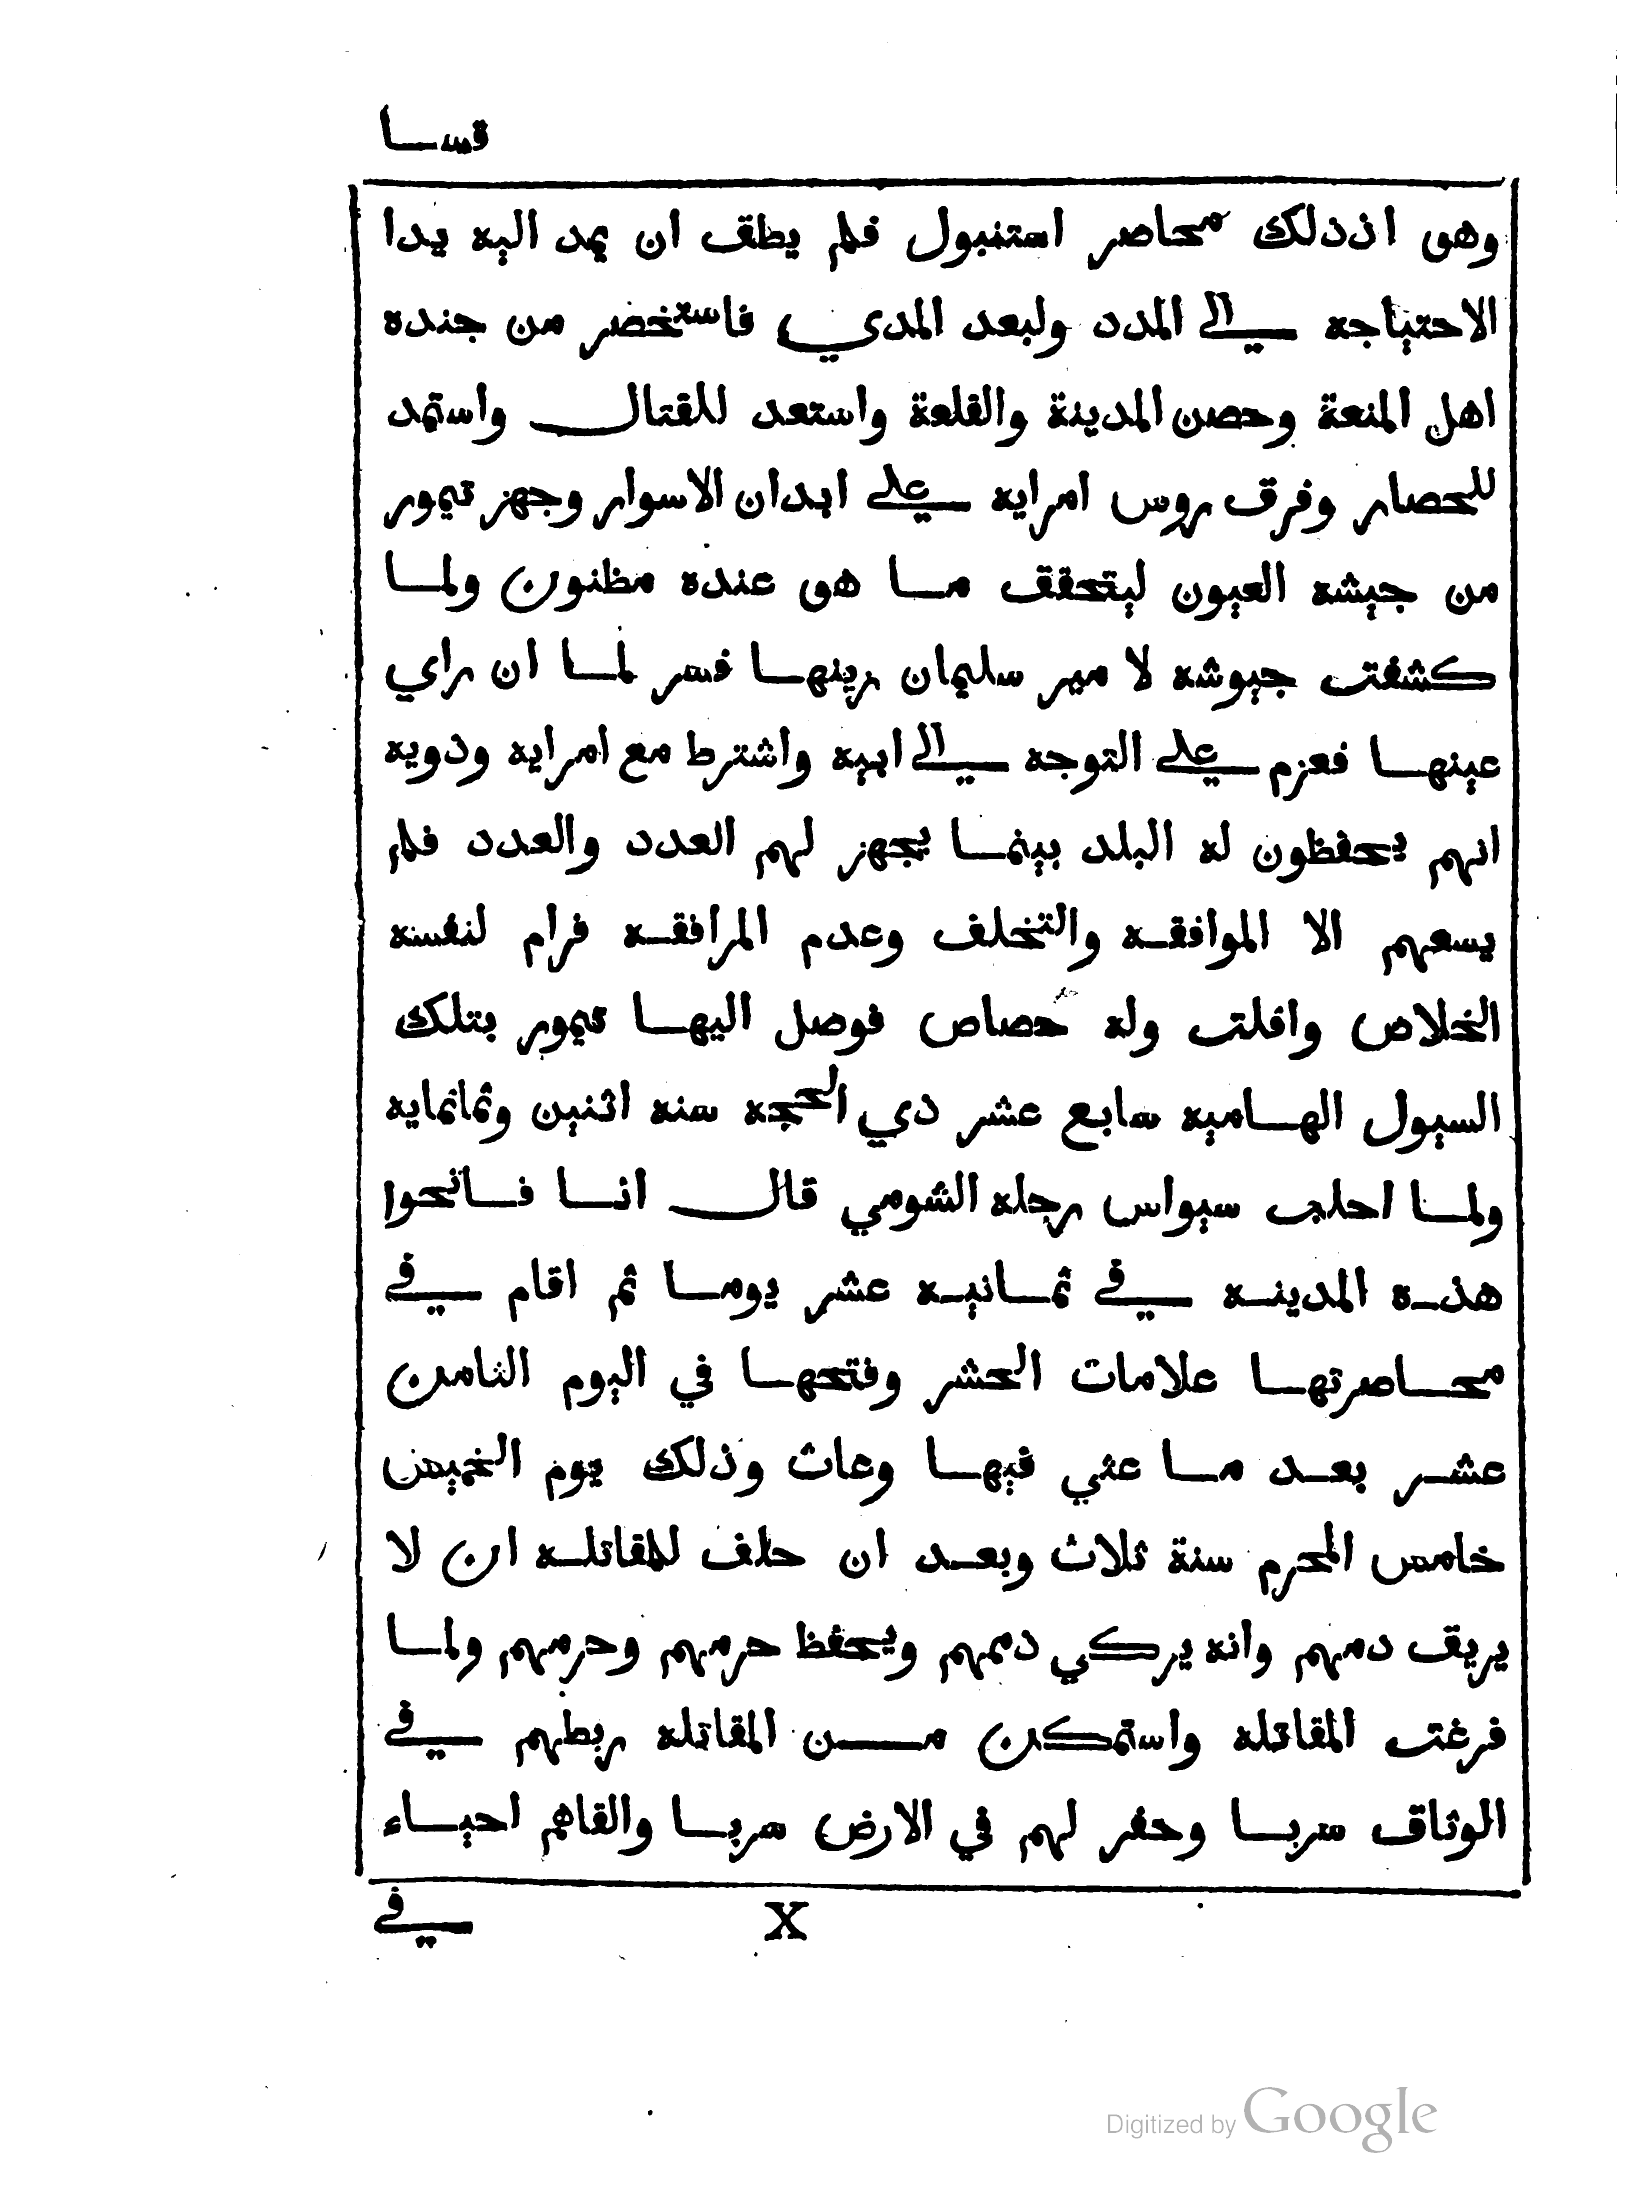 قسا
وهو اذذلك محاصر استنبول فلم يطق ان يمد اليه يدا
الاحتياجه الي المدد ولبعد المدي فاستخضر من جنده
اهل المنعة وحصن المدينة والقلعة واستعد للقتال واستمد
للحصار وفرق روس امرايه علي ابدان الاسوار وجهز تيمور
من جيشه العيون ليتحقق ما هو عنده مظنون ولما
كشفت جيوشه لا مير سليمان زينها فسر لما ان راي
عينها فعزم علي التوجه الي ابيه واشترط مع امرايه ودويه
انهم يحفظون له البلد بينما يجهز لهم العدد والعدد فلم
يسعهم الا الموافقه والتخلف وعدم المرافقه فرام لنفسه
الخلاص وافلت وله حصاص فوصل اليها تيمور بتلك
السيول الهاميه سابع عشر ذي الحجه سنه اثنين وثمانمايه
ولما احلب سيواس رجله الشومي قال انا فاتحوا
هذه المدينه في ثمانيه عشر يوما ثم اقام في
محاصرتها علامات الحشر وفتحها في اليوم الثامن
عشر بعد ما عثي فيها وعاث وذلك يوم الخميس
خامس المحرم سنة ثلاث وبعد ان حلف للمقاتله ان لا
يريق دمهم وانه يركي دممهم ويحفظ حرمهم وحرمهم ولما
فرغت المقاتله واستمكن من المقاتله ربطهم في
الوثاق سربا وحفر لهم في الارض سربا والقاهم احياء
في
X
Digitized by Google